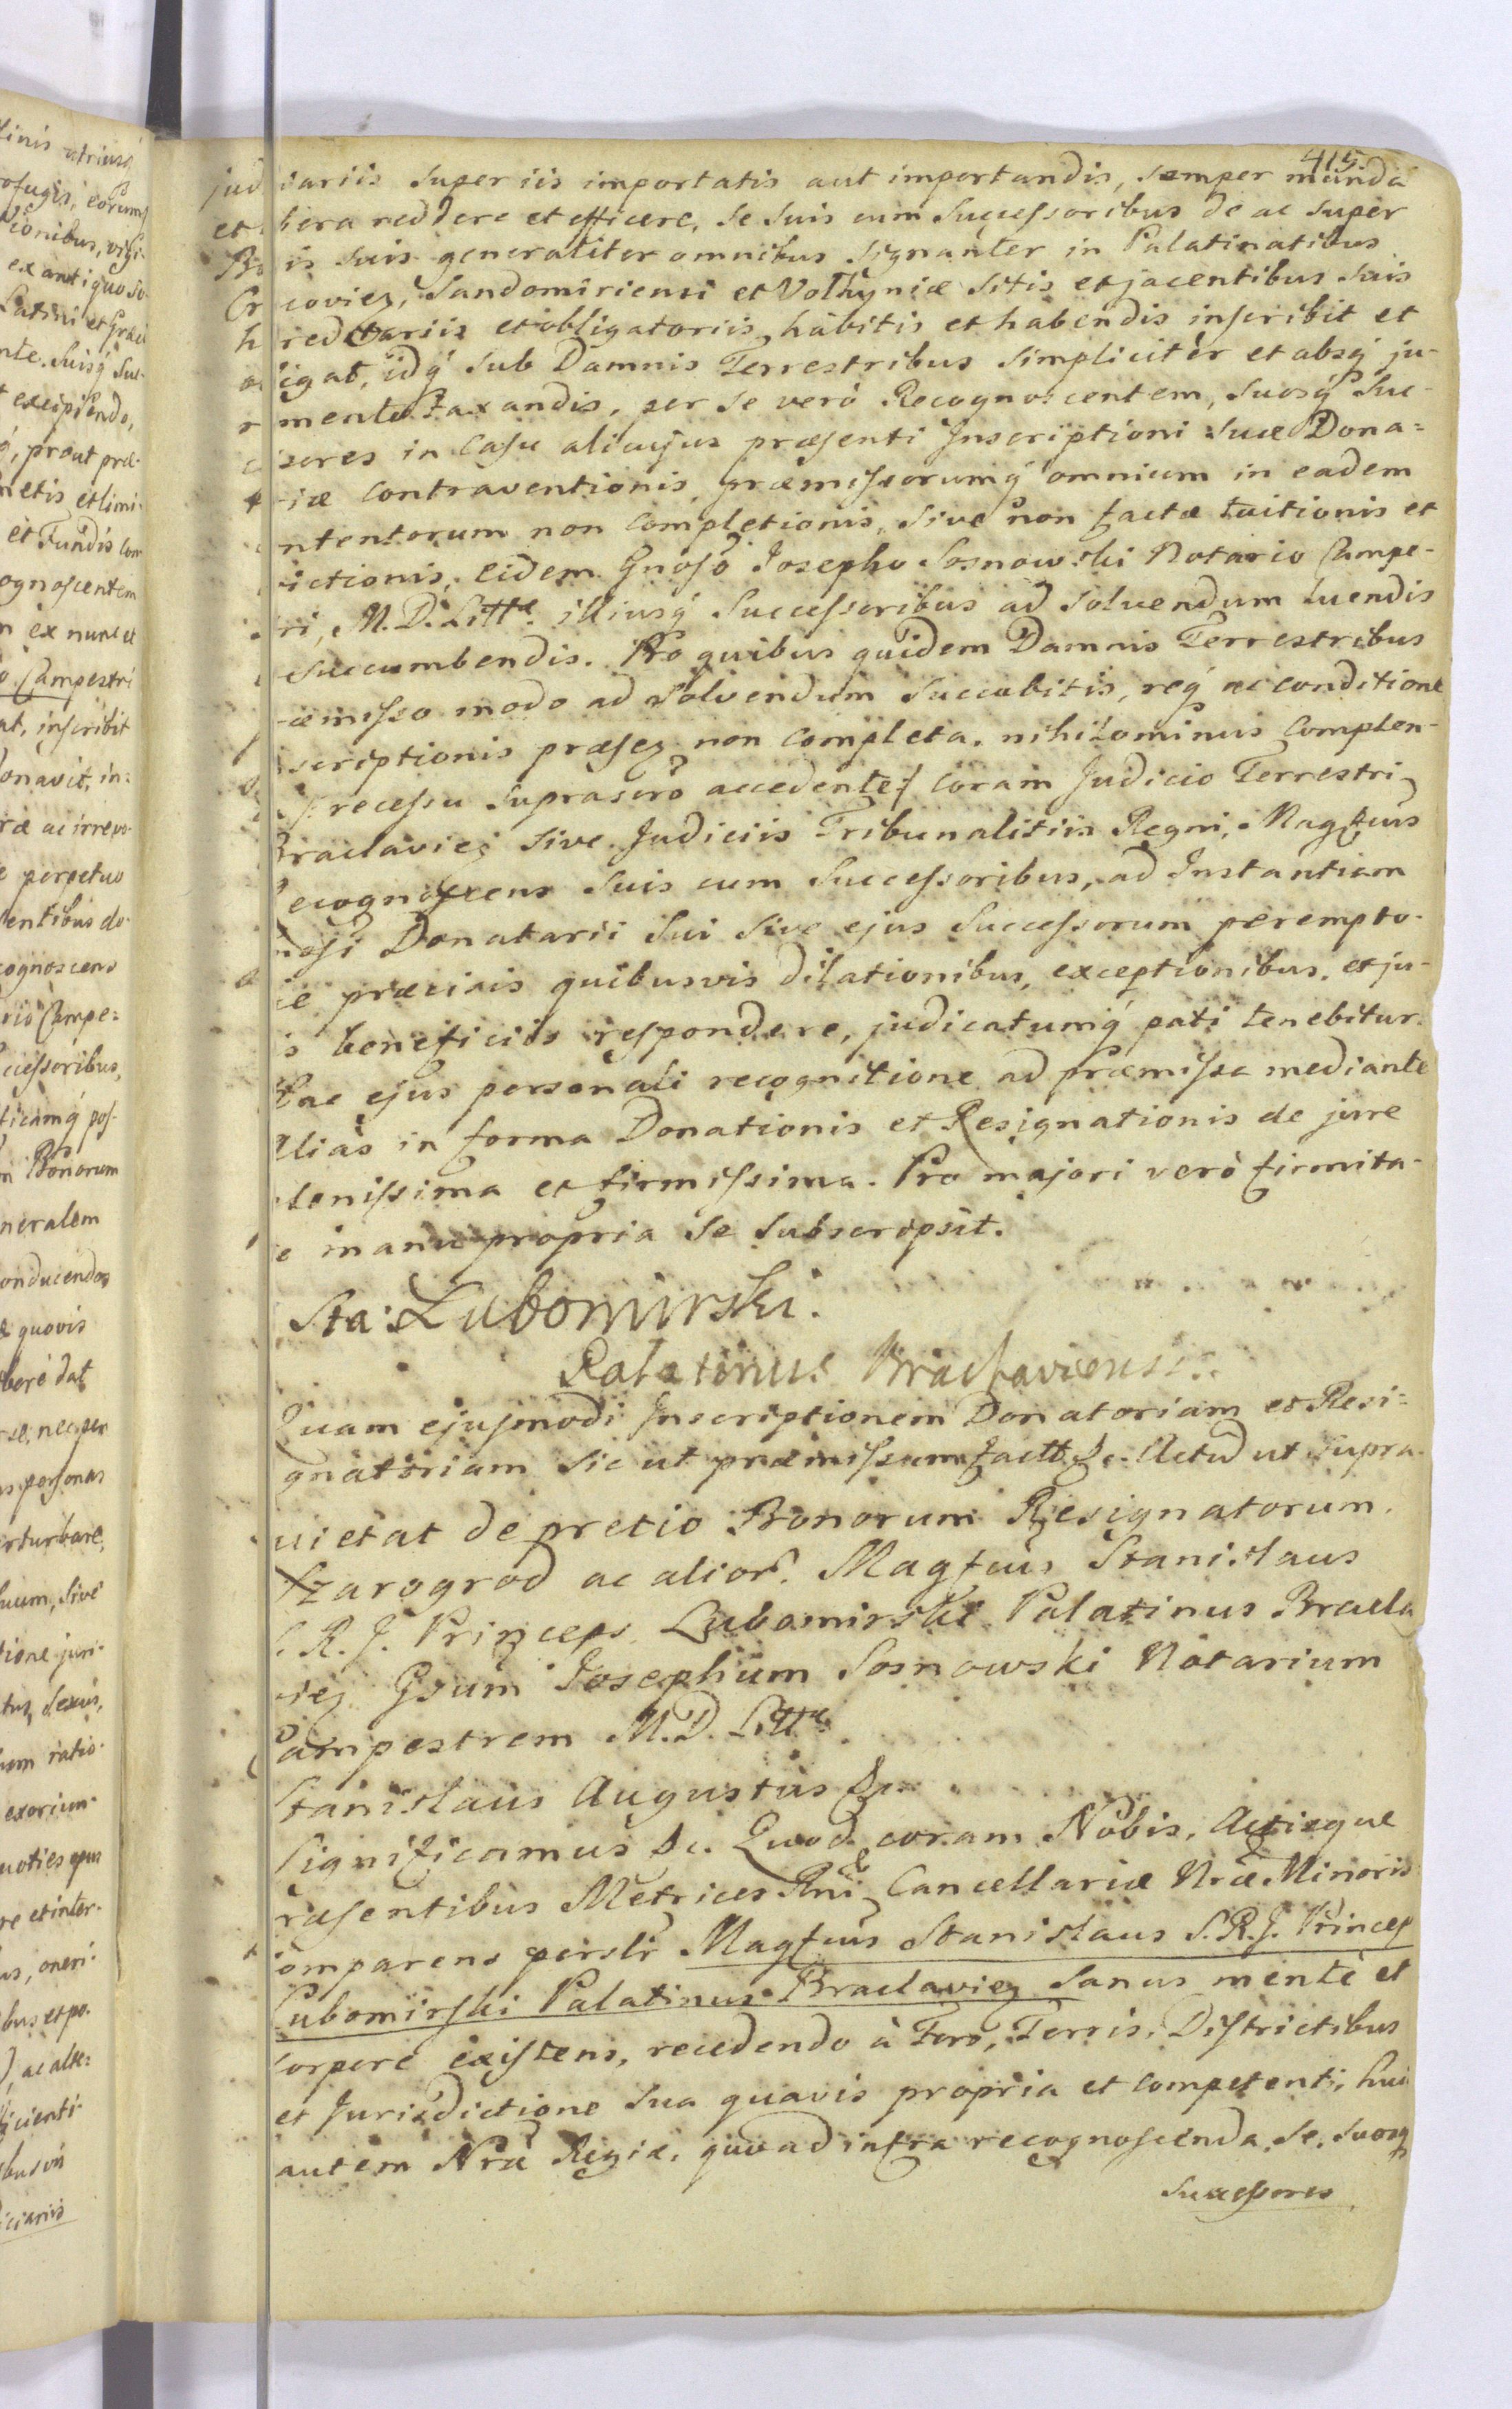 415.
judiciariis super iis importatis aut importandis, semper munda
et libera reddere et efficere, se suis cum Successoribus de ac super
Bonis suis generaliter omnibus signanter in Palatinatibus
Cracoviez, Sandomiriensi et Volhyniæ sitis et jacentibus suis
hæreditariis et obligatoriis, habitis et habendis inscribit et
ligat, idq́ sub Damnis Terrestribus simpliciter et absq́ ju-
mento taxandis, per se verò Recognoscentem, suosq́ Suc-
sores in Casu alicujus præsenti Inscriptioni suæ Dona=
iæ contraventionis, præmissorumq́ omnium in eadem
ntentorum non completionis, sive non factæ tuitionis et
ictionis, eidem Gnoso Josepho Sosnowski Notario Campe-
ri, M. D. Littæ. illiusq́ Successoribus ad solvendum luendis
succumbendis. Pro quibus quidem Damnis Terrestribus
æmisso modo ad solvendum succubitis, req́ ac conditione
scriptionis præsez non completa, nihilominus complen-
recessu suprascro accedente/ coram Judicio Terrestri
Braclaviez sive Judiciis Tribunalitiis Regni, Magfcus
Recognoscens suis cum Successoribus, ad Instantiam
nosi Donatarii sui sive ejus Successorum perempto-
ie præcisis quibusvis dilationibus, exceptionibus, et ju-
s beneficiis respondere, judicatumq́ pati tenebitur.
Hac ejus personali recognitione ad præmissa mediante
Alias in forma Donationis et Resignationis de jure
lenissima et firmissima. Pro majori verò firmita-
e manu propria se subscripsit.
Sta: Lubomirski.
Palatinus Braclaviensis.
Quam ejusmodi Inscriptionem Donatoriam et Resi=
gnatoriam sicut præmissum factt &c. Actũ ut supra.
uietat de pretio Bonorum Resignatorum
Szarogrod ac alior. Magfcus Stanislaus
S. R. J. Princeps Lubomirski Palatinus Bracla
viez Gsum Josephum Sosnowski Notarium
Campestrem M. D. Littæ.
Stanislaus Augustus &c.
Significamus &c. Quod coram Nobis, Actisque
ræsentibus Metrices Rni, Cancellariæ Nræ Minoris
omparens perslr Magfcus Stanislaus S. R. J. Princeps
Lubomirski Palatinus Braclaviez sanus mente et
corpore existens, recedendo à Foro, Terris, Districtibus
et Jurisdictione sua quavis propria et competenti, huic
autem Nræ Regiæ, quoad infra recognoscenda, se, suosq
Successores